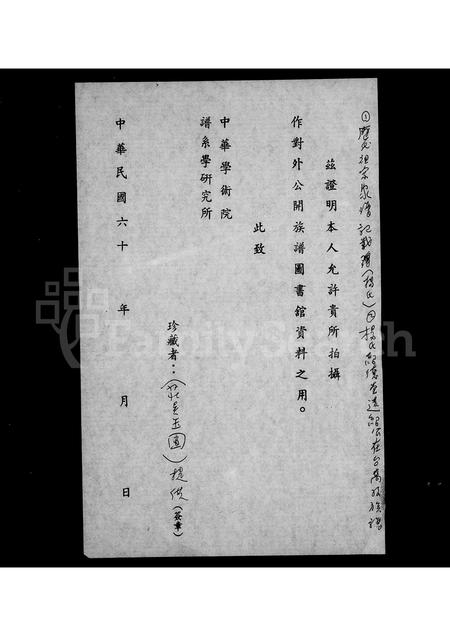 ①歷代祖宗家情記載簿(楊氏)②楊氏 在台 族譜
茲證明本人允許貴所拍攝
作對外公開族譜圖書館資料之用。
此致
中華學術院
譜系學研究所
珍藏者：(吳玉 )提供(簽章)
中華民國六十 年 月 日
familysearch